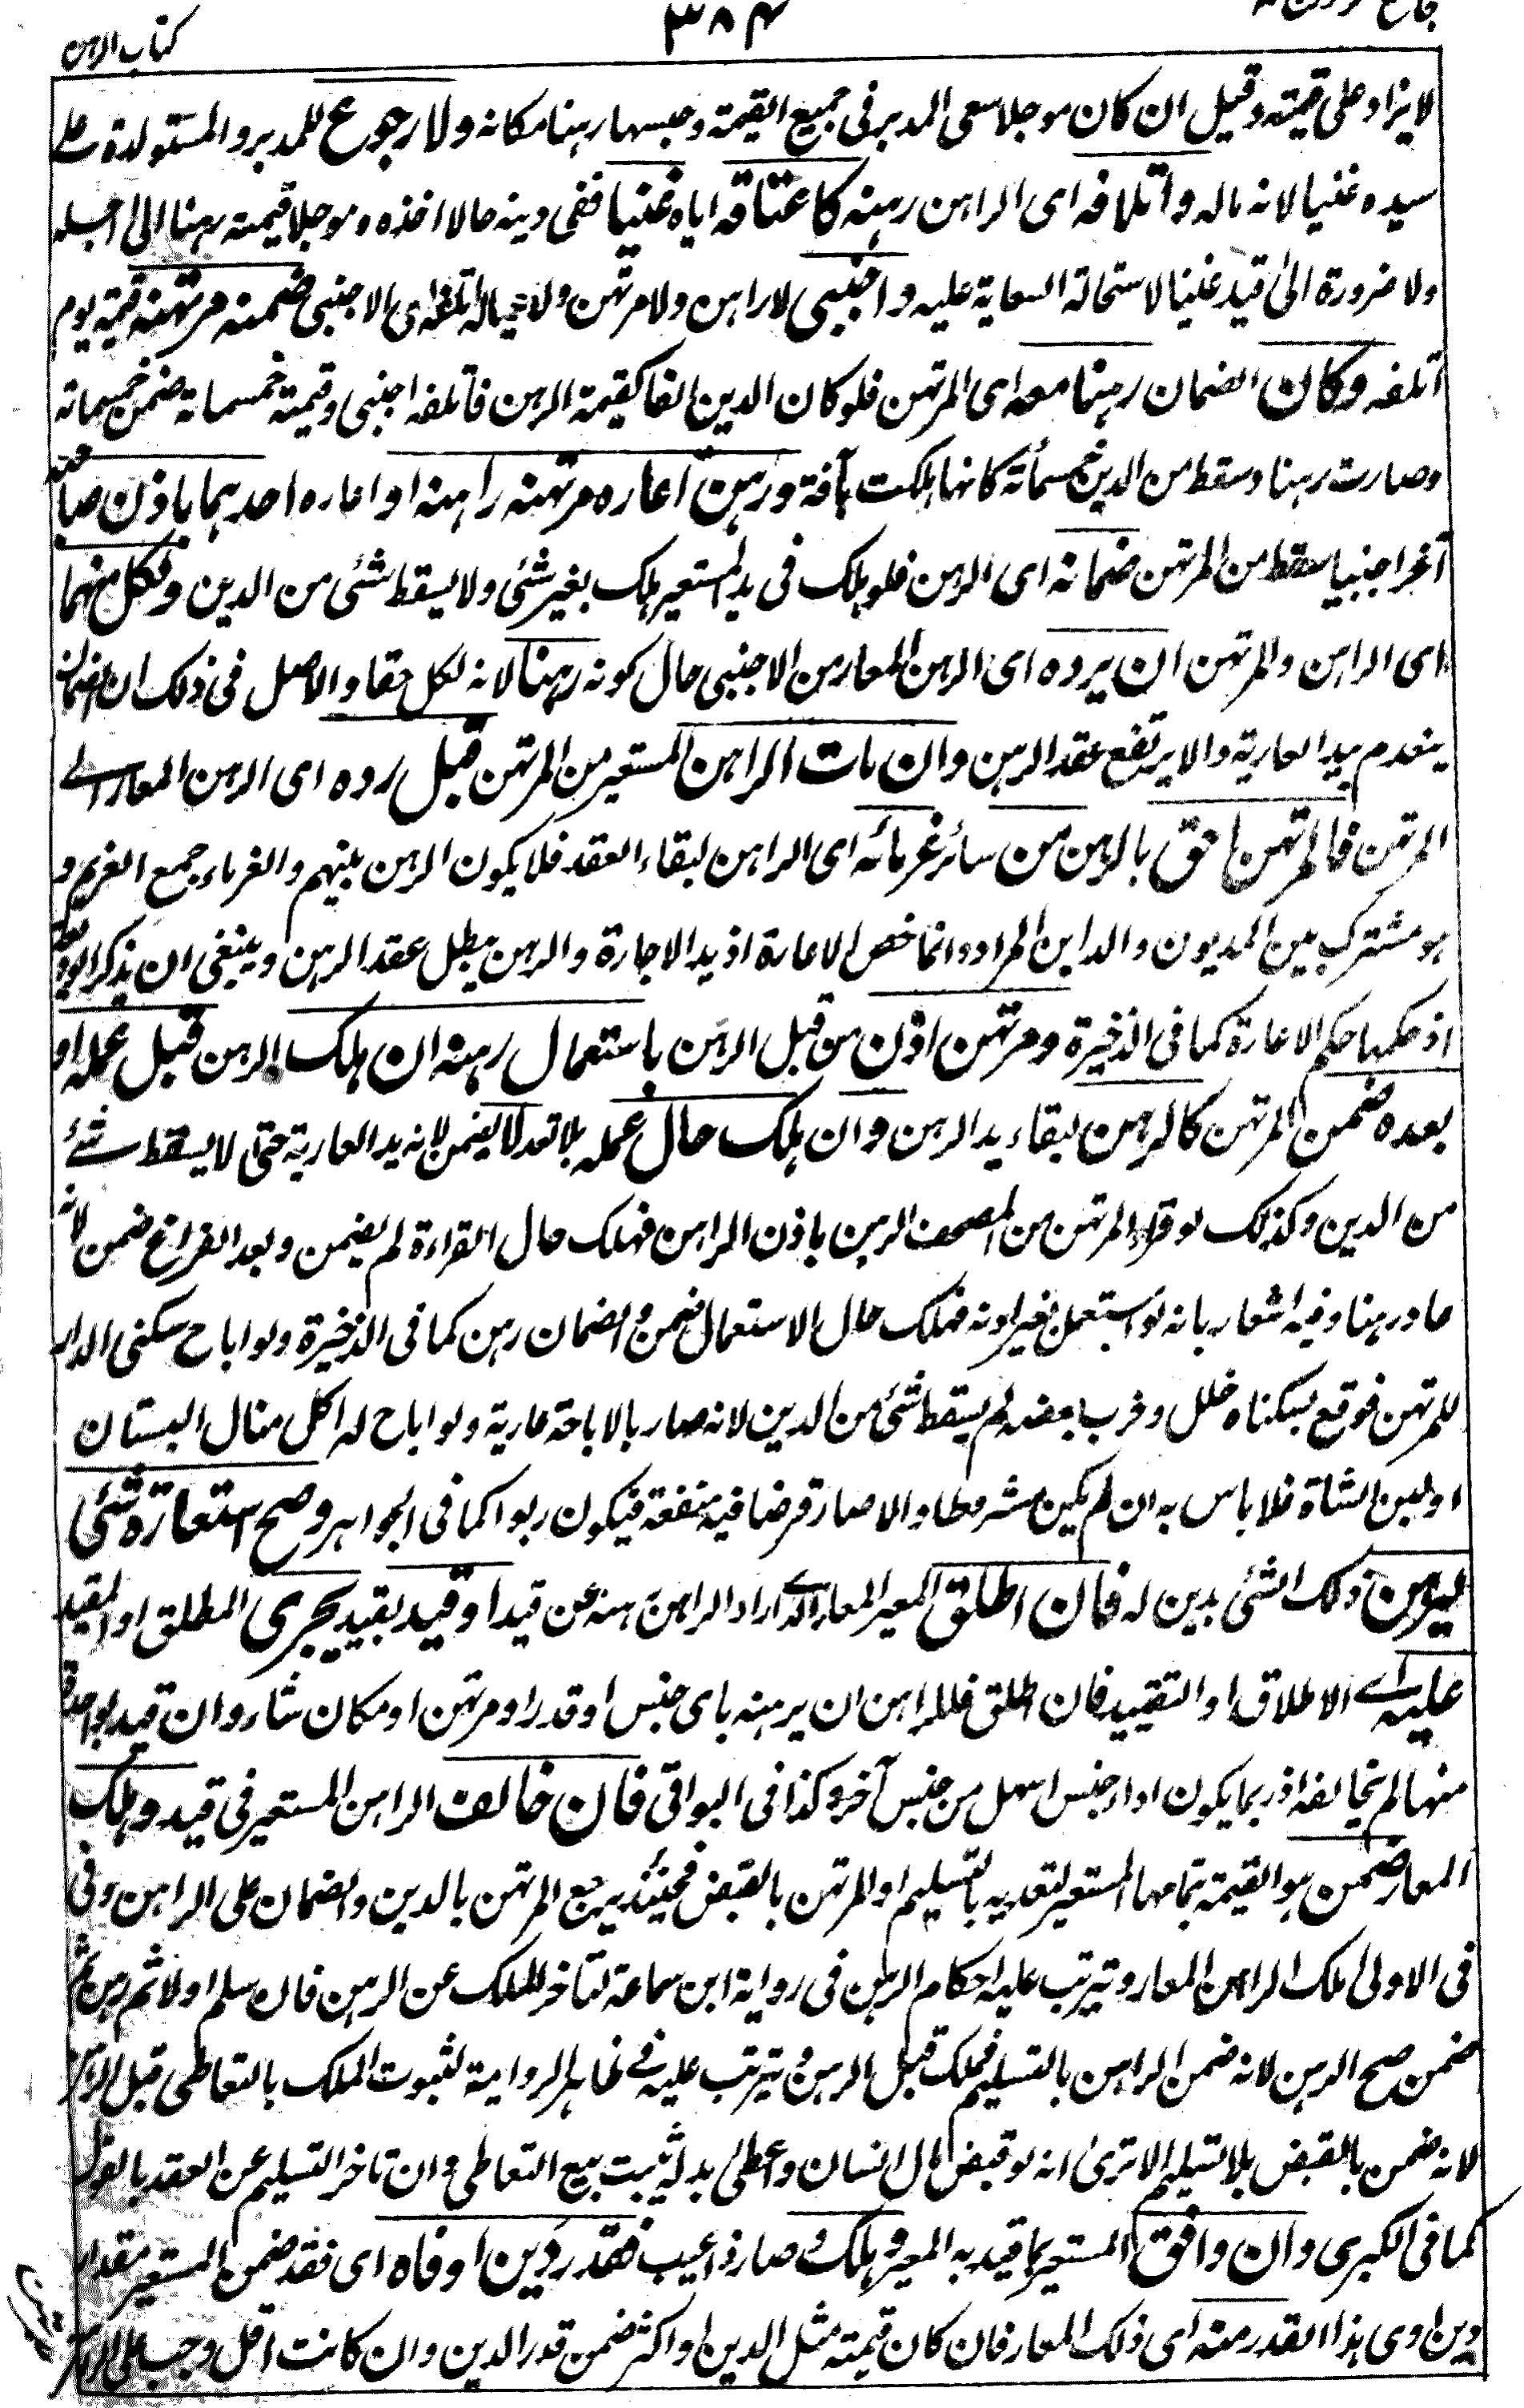 كتاب الرهن
٣٨٤
لا يزاد على قيمته وقيل ان كان موجلا سعى المدبر فى جميع القيمة وحبسها رهنا مكانه ولا رجوع للمدبر والمستولدة على
سيده غنيا لانه ماله واتلافه اى الراهن رهنه كاعتاقه اياه غنيا ففى دينه حالا اخذه وموجلا قيمته رهنا الى اجله
ولا ضرورة الى قيد غنيا لاستحالة السعاية عليه واجنبى لا راهن ولا مرتهن ولا اتلفه اى الاجنبى ضمنه مرتهنه قيمة يوم
اتلفه وكان الضمان رهنا معه اى المرتهن فلو كان الدين الفا كقيمة الرهن فاتلفه اجنبى وقيمته خمسمائة ضمن خمسمائة
وصارت رهنا وسقط من الدين خمسمائة كانها هلكت بآفة ورهن اعاره مرتهنه راهنه او اعاره احدهما باذن صاحبه
آخر اجنبيا سقط من المرتهن ضمانه اى الرهن فلو هلك فى يد المستعير هلك بغير شئ ولا يسقط شئ من الدين ولكل منهما
اى الراهن والمرتهن ان يرده اى الرهن المعار من الاجنبى حال كونه رهنا لانه لكل حقا والاصل فى ذلك ان الضمان
ينعدم بيد العارية والا يرتفع عقد الرهن وان مات الراهن المستعير من المرتهن قبل رده اى الرهن المعار الے
المرتهن فالمرتهن احق بالرهن من سائر غرمائه اى الراهن لبقاء العقد فلا يكون الرهن بينهم والغرماء جمع الغريم و
هو مشترك بين المديون والداين المراد وانما خص الاعارة اذ يد الاجارة والرهن يبطل عقد الرهن وينبغى ان يذكر الوديعة
اذ حكمها حكم الاعارة كما فى الذخيرة ومرتهن اذن من قبل الراهن باستعمال رهنه ان هلك الرهن قبل عمله او
بعده ضمن المرتهن كالرهن لبقاء يد الرهن وان هلك حال عمله بلا تعد لا يضمن لانه يد العارية حتى لا يسقط شئے
من الدين وكذلك لو قرأ المرتهن من المصحف الرهن باذن الراهن فهلك حال القراءة لم يضمن وبعد الفراغ ضمن لانه
عاد رهنا وفيه اشعار بانه لو استعمل بغير اذنه فهلك حال الاستعمال ضمن والضمان رهن كما فى الذخيرة ولو اباح سكنى الدار
للمرتهن فوقع بسكناه خلل وخرب بعضه لم يسقط شئ من الدين لانه صار بالاباحة عارية ولو اباح له اكل منال البستان
او لبن الشاة فلا باس به ان لم يكن مشروطا والا صار قرضا فيه منفعة فيكون ربوا كما فى الجواهر وصح استعارة شئ
ليرهن ذلك الشئ بدين له فان اطلق المعير المعار اراد الراهن رهنه عن قيد او قيد بقيد يجرى المطلق او المقيد
عليه اے الاطلاق او التقييد فان اطلق فللراهن ان يرهنه باى جنس او قدر او مرتهن او مكان شاء وان قيد بواحد
منها لم يخالفه اذ ربما يكون اداء جنس اسهل من جنس آخر وكذا فى البواقى فان خالف الراهن المستعير فى قيد وهلك
المعار ضمن هو القيمة بتمامها المستعير لتعديه بالتسليم او المرتهن بالقبض فحينئذ يرجع المرتهن بالدين والضمان على الراهن وفى
فى الاولى ملك الراهن المعار ويترتب عليه احكام الرهن فى رواية ابن سماعة لتاخر الملك عن الرهن فان سلم اولا ثم رهن ثم
ضمن صح الرهن لانه ضمن الراهن بالتسليم فملك قبل الرهن ويترتب عليه فے ظاهر الرواية لثبوت الملك بالتعاطى قبل الرهن
لانه ضمن بالقبض بلا تسليم الا ترى انه لو قبض مال انسان واعطى بدله يثبت بيع التعاطى وان تاخر التسليم عن العقد بالقول
كما فى الكبرى وان وافق المستعير بما قيد به المعير وهلك وصار ذا عيب فقدر دين اوفاه اى فقد ضمن المستعير مقدار
دين اوى هذا القدر منه اى ذلك المعار فان كان قيمته مثل الدين او اكثر ضمن قدر الدين وان كانت اقل وجب على الراهن